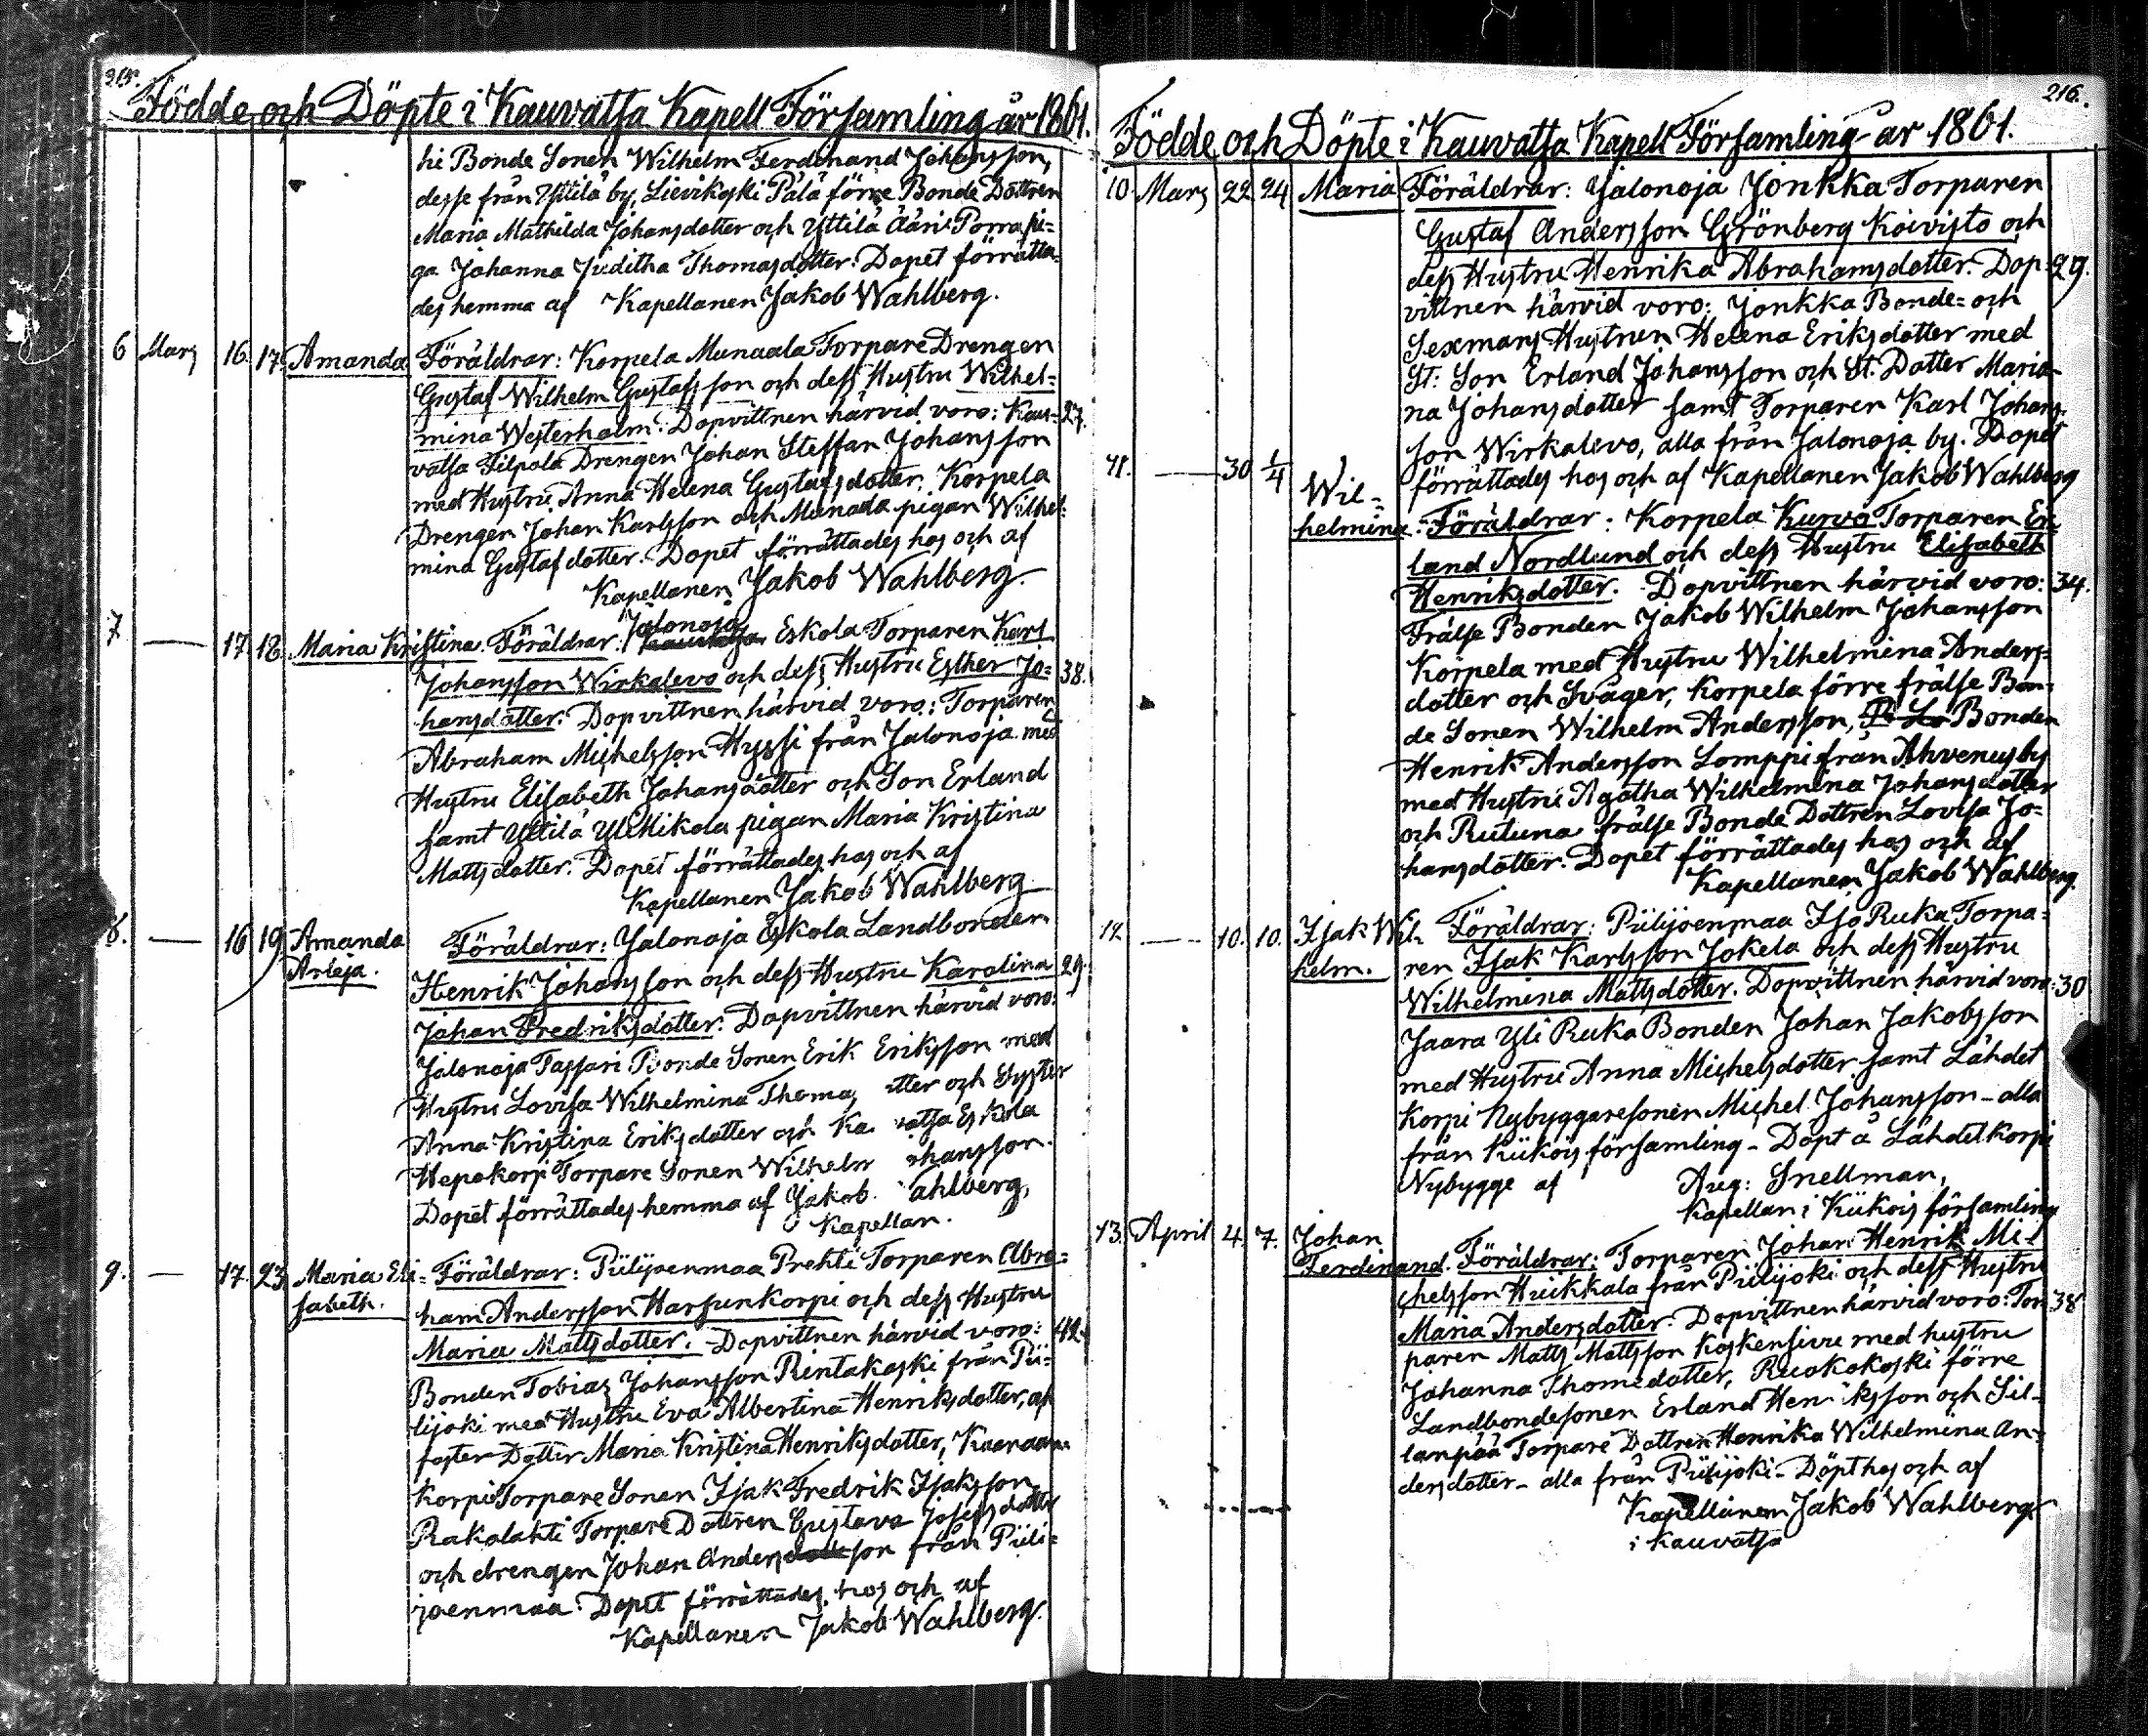 215.
Födde och Döpte i Kauvatsa Kapell Församling år 1861.
hi Bonde Sonen Wilhelm Ferdinand Johansson,
desse från Yttilä by, Lievikoski Pälä förre Bonde Dottren
Maria Mathilda Johansdotter och Yttilä Ääri Porra pi=
ga Johanna Juditha Thomasdotter. Dopet förrätta=
des hemma af Kapellanen Jakob Wahlberg.
6 Mars 16. 17. Amanda Föräldrar: Korpela Munaala Torpare Drengen
Gustaf Wilhelm Gustafsson och dess Hustru Wilhel=
mina Westerholm. Dopvittnen härvid voro: Kau= 27.
vatsa Filpola Drengen Johan Steffan Johansson
med Hustru Anna Helena Gustafsdotter, Korpela
Drengen Johan Karlsson och Munada pigan Wilhel=
mina Gustafdotter. Dopet förrättades hos och af
Kapellanen Jakob Wahlberg.
7 — 17. 18. Maria Kristina. Föräldrar: Jalonoja Eskola Torparen Karl
Johansson Wirkalevo och dess Hustru Esther Jo= 38.
hansdotter. Dopvittnen härvid voro: Torparen
Abraham Michelsson Hyssi från Jalonoja med
Hustru Elisabeth Johansdotter och Son Erland
samt Yttilä Yli Mikola pigan Maria Kristina
Mattsdotter. Dopet förrättades hos och af
Kapellanen Jakob Wahlberg
8. — 16 19 Amanda Föräldrar: Jalonoja Eskola Landbonden
Arleja. Henrik Johansson och dess Hustru Karolina 29.
Johan Fredriksdotter. Dopvittnen härvid voro:
Jalonoja Tassari Bonde Sonen Erik Eriksson med
Hustru Lovisa Wilhelmina Thomas tter och Syster
Anna Kristina Eriksdotter och Ka vatsa Eskola
Hepokorpi Torpare Sonen Wilhelm hansson.
Dopet förrättades hemma af Jakob ahlberg,
Kapellan.
9. — 17. 23 Maria Eli= Föräldrar: Piilijoenmaa Prehti Torparen Abra=
sabeth. ham Andersson Harsunkorpi och dess Hustru
Maria Mattsdotter. Dopvittnen härvid voro: 42.
Bonden Tobias Johansson Rintakoski från Pii=
lijoki med Hustru Eva Albertina Henriksdotter, af
foster Dotter Maria Kristina Henriksdotter,
korpi Torpare Sonen Isak Fredrik Isaksson
Rakolahti Torpare Dottren Gustava Josefsdotter
och drengen Johan Andersson från Piili=
joenmaa. Dopet förrättades hos och af
Kapellanen Jakob Wahlberg.
216.
Födde och Döpte i Kauvatsa Kapell Församling år 1861.
10. Mars 22 24 Maria Föräldrar: Jalonoja Jonkka Torparen
Gustaf Andersson Grönberg Koivisto och
dess Hustru Henrika Abrahamsdotter. Dop= 29.
vittnen härvid voro: Jonkka Bonde= och
Sexmans Hustrun Helena Eriksdotter med
St: Son Erland Johansson och St. Dotter Maria=
na Johansdotter samt Torparen Karl Johans=
son Wirkalevo, alla från Jalonoja by. Dopet
förrättades hos och af Kapellanen Jakob Wahlberg
11. — 30 1/4 Wil=
helmina. Föräldrar: Korpela Kurvo Torparen Er=
land Nordlund och dess Hustru Elisabeth
Henriksdotter. Dopvittnen härvid voro: 34.
Frälse Bonden Jakob Wilhelm Johansson
Korpela med Hustru Wilhelmina Anders=
dotter och Svåger, Korpela förre frälse Bon=
de Sonen Wilhelm Andersson, Bonden
Henrik Andersson Lomppi från Ahvenus by
med Hustru Agatha Wilhelmina Johansdotter
och Rutuna frälse Bonde Dottren Lovisa Jo=
hansdotter. Dopet förrättades hos och af
Kapellanen Jakob Wahlberg.
12. — 10. 10. Isak Wil= Föräldrar: Piilijoenmaa Iso Ruka Torpa=
helm. ren Isak Karlsson Jokela och dess Hustru
Wilhelmina Mattsdotter. Dopvittnen härvid voro: 30
Jaara Yli Ruka Bonden Johan Jakobsson
med Hustru Anna Michelsdotter samt Lähdet
korpi Nybyggaresonen Michel Johansson – alla
från Kiikois församling – Döpt å Lähdetkorpi
Nybygge af Aug: Snellman,
Kapellan i Kiikois församling
13. April 4. 7. Johan
Ferdinand. Föräldrar: Torparen Johan Henrik Mi=
chelsson Huikkala från Piilijoki och dess Hustru
Maria Andersdotter. Dopvittnen härvid voro: Tor 38
paren Matts Mattsson Koskensivu med hustru
Johanna Thomedotter, Ruokokoski förre
Landbondesonen Erland Hen iksson och Sil=
lanpää Torpare Dottren Henrika Wilhelmina An=
dersdotter – alla från Piilijoki – Döpt hos och af
Kapellanen Jakob Wahlberg
i Kauvatsa